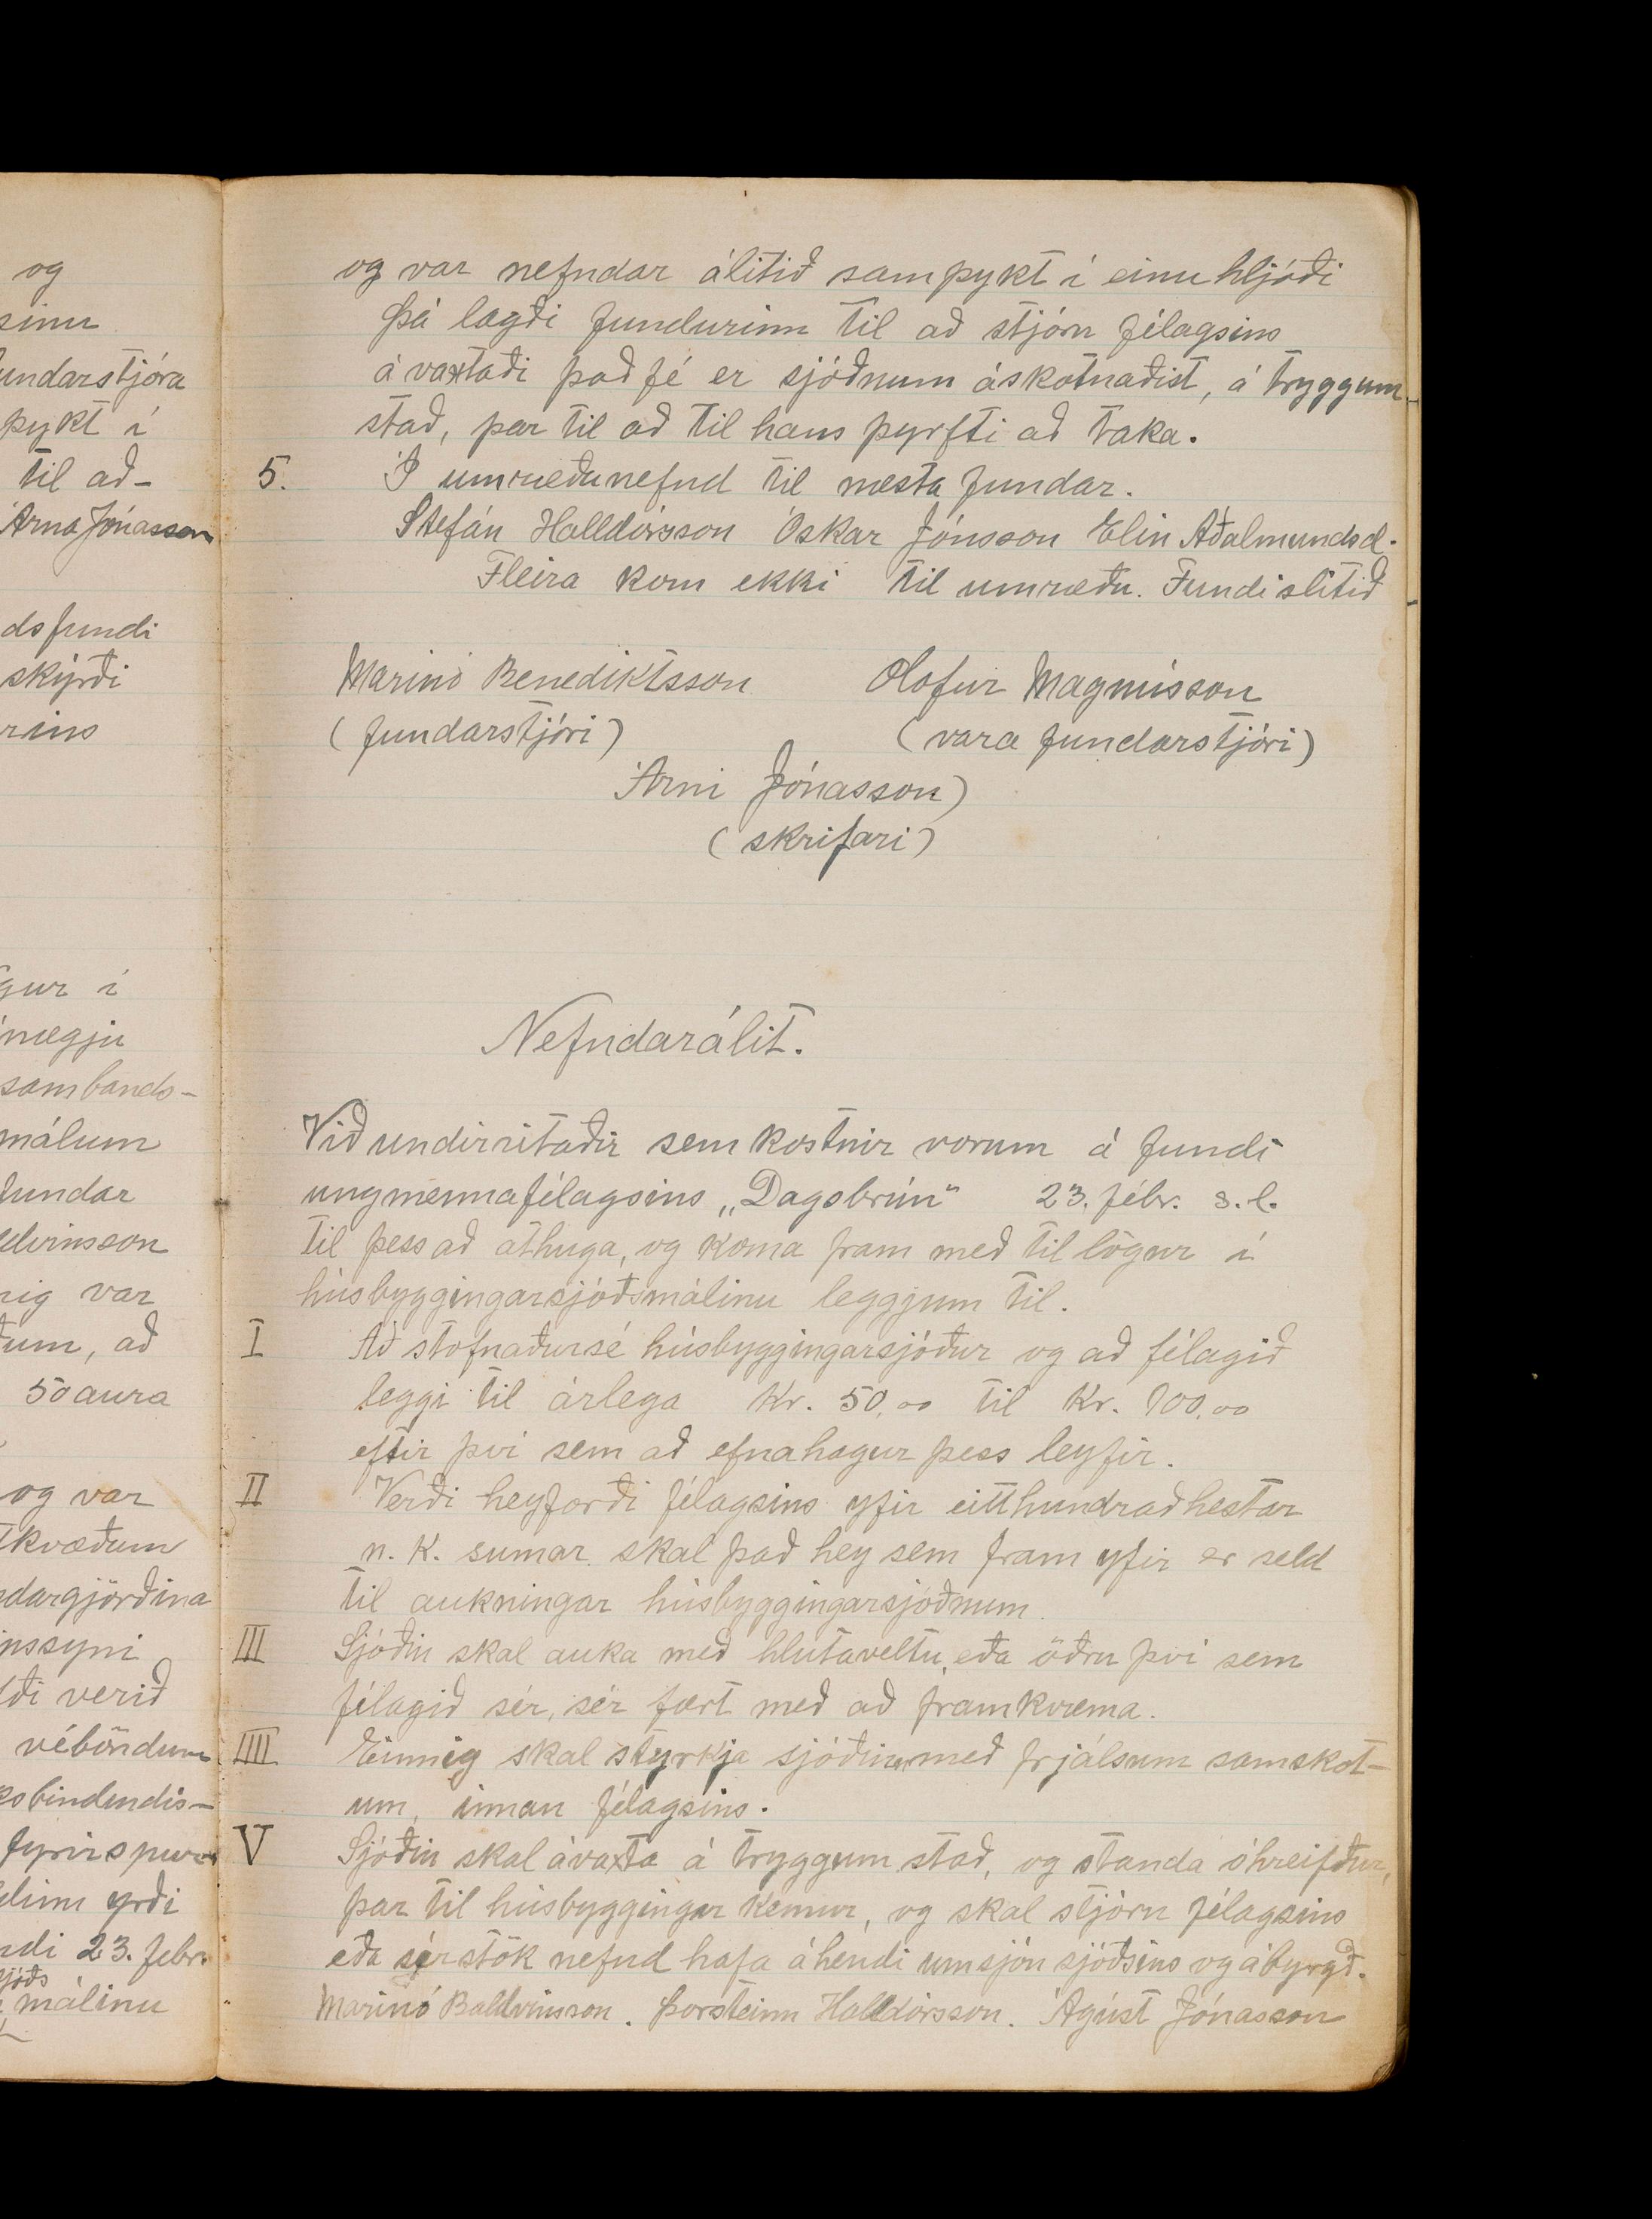 og
sinu
undarstjóra
þykt í
til að-
Árna Jónasson
dsfundi
skýrði
rins
gur í
nægju
sambands-
málum
fundar
ldvinsson
nig var
ðum, að
50 aura
og var
tkvæðum
ndargjörðina
nssyni
ði verið
véböndum
sbindindis-
fyrirspurn
yrði
ndi 23. febr.
sjóðs
málinu
og var nefndar álitið samþykt í einu hljóði
Þá lagði fundurinn til að stjórn félagsins
ávaxtaði það fé er sjóðnum áskotnaðist, á tryggum
stað, þar til að til hans þyrfti að taka.
5. Í umræðunefnd til næsta fundar.
Stefán Halldórsson Óskar Jónsson Elin Aðalmundsd.
Fleira kom ekki til umræðu. Fundi slitið
Marinó Benediktsson Ólofur Magnússon
(fundarstjóri) (vara fundarstjóri)
Árni Jónasson)
(skrifari)
Nefndarálit.
Við undirritaðir sem kostnir vorum á fundi
ungmennafélagsins „Dagsbrún" 23. fébr. s.l.
til þess að athuga, og koma fram með tillögur í
húsbyggingarsjóðsmálinu leggjum til.
I Að stofnaður sé húsbyggingarsjóður og að félagið
leggi til árlega Kr. 50,00 til Kr. 100,00
eftir því sem að efnahagur þess leyfir.
II Verði heyforði félagsins yfir eitthundrað hestar
n.k. sumar skal það hey sem fram yfir er seld
til aukningar húsbyggingarsjóðnum.
III Sjóðin skal auka með hlutaveltu, eða öðru því sem
félagið sér, sér fært með að framkvæma.
IIII Einnig skal styrkja sjóðinn með frjálsum samskot-
um, innan félagsins.
V Sjóðin skal ávaxta á tryggum stað, og standa óhreifður,
þar til húsbyggingar kemur, og skal stjórn félagsins
eða sérstök nefnd hafa áhendi umsjón sjóðsins og ábyrgð.
Marinó Baldvinsson. Þorsteinn Halldórsson. Ágúst Jónasson